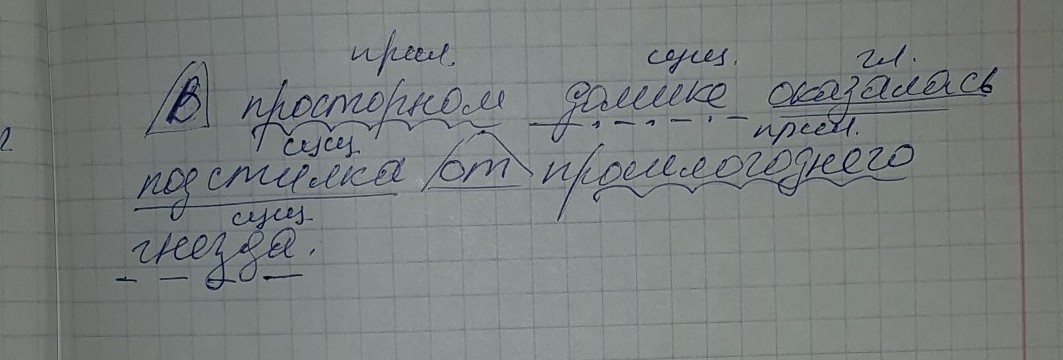 прил. сущ. гл.
В просторном домике оказалась
сущ. прил.
подстилка от прошлогоднего
сущ.
гнезда.